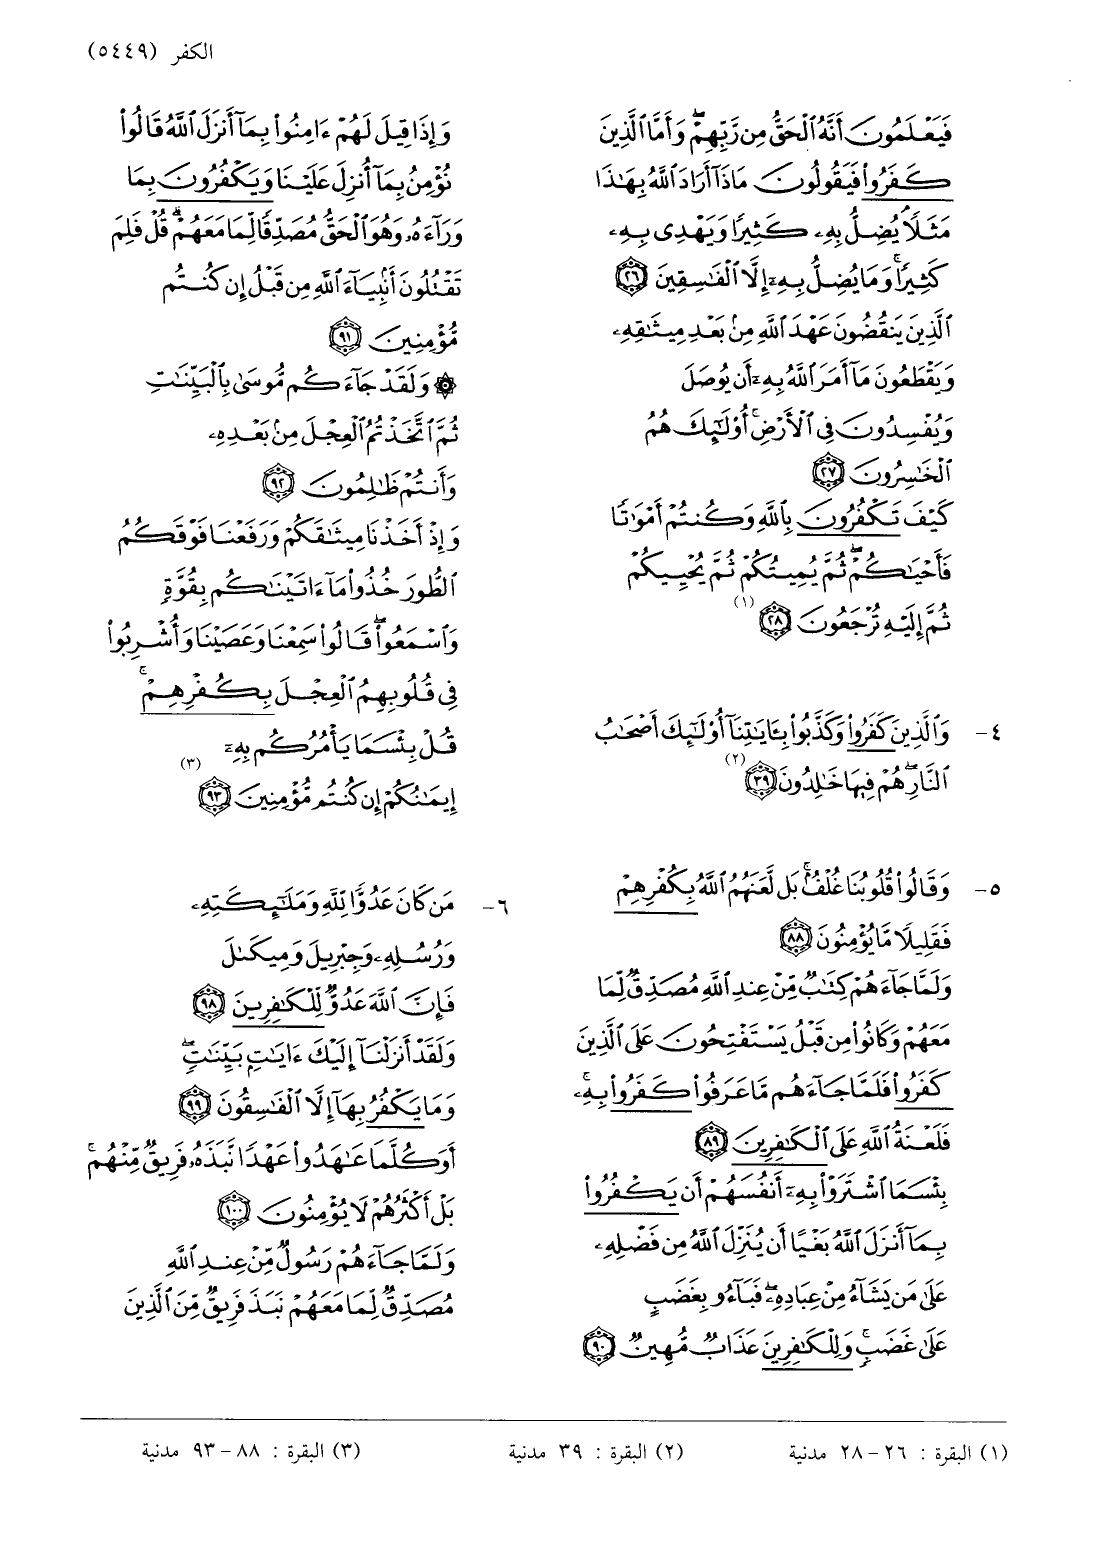 الكفر (٥٤٤٩)
فَيَعْلَمُونَ أَنَّهُ الْحَقُّ مِن رَّبِّهِمْ ۖ وَأَمَّا الَّذِينَ
كَفَرُوا فَيَقُولُونَ مَاذَا أَرَادَ اللَّهُ بِهَٰذَا
مَثَلًا ۘ يُضِلُّ بِهِ كَثِيرًا وَيَهْدِي بِهِ
كَثِيرًا ۚ وَمَا يُضِلُّ بِهِ إِلَّا الْفَاسِقِينَ ﴿٢٦﴾
الَّذِينَ يَنقُضُونَ عَهْدَ اللَّهِ مِن بَعْدِ مِيثَاقِهِ
وَيَقْطَعُونَ مَا أَمَرَ اللَّهُ بِهِ أَن يُوصَلَ
وَيُفْسِدُونَ فِي الْأَرْضِ ۚ أُولَٰئِكَ هُمُ
الْخَاسِرُونَ ﴿٢٧﴾
كَيْفَ تَكْفُرُونَ بِاللَّهِ وَكُنتُمْ أَمْوَاتًا
فَأَحْيَاكُمْ ۖ ثُمَّ يُمِيتُكُمْ ثُمَّ يُحْيِيكُمْ
ثُمَّ إِلَيْهِ تُرْجَعُونَ ﴿٢٨﴾ (١)
٤- وَالَّذِينَ كَفَرُوا وَكَذَّبُوا بِآيَاتِنَا أُولَٰئِكَ أَصْحَابُ
النَّارِ ۖ هُمْ فِيهَا خَالِدُونَ ﴿٣٩﴾ (٢)
٥- وَقَالُوا قُلُوبُنَا غُلْفٌ ۚ بَل لَّعَنَهُمُ اللَّهُ بِكُفْرِهِمْ
فَقَلِيلًا مَّا يُؤْمِنُونَ ﴿٨٨﴾
وَلَمَّا جَاءَهُمْ كِتَابٌ مِّنْ عِندِ اللَّهِ مُصَدِّقٌ لِّمَا
مَعَهُمْ وَكَانُوا مِن قَبْلُ يَسْتَفْتِحُونَ عَلَى الَّذِينَ
كَفَرُوا فَلَمَّا جَاءَهُم مَّا عَرَفُوا كَفَرُوا بِهِ ۚ
فَلَعْنَةُ اللَّهِ عَلَى الْكَافِرِينَ ﴿٨٩﴾
بِئْسَمَا اشْتَرَوْا بِهِ أَنفُسَهُمْ أَن يَكْفُرُوا
بِمَا أَنزَلَ اللَّهُ بَغْيًا أَن يُنَزِّلَ اللَّهُ مِن فَضْلِهِ
عَلَىٰ مَن يَشَاءُ مِنْ عِبَادِهِ ۖ فَبَاءُو بِغَضَبٍ
عَلَىٰ غَضَبٍ ۚ وَلِلْكَافِرِينَ عَذَابٌ مُّهِينٌ ﴿٩٠﴾
وَإِذَا قِيلَ لَهُمْ آمِنُوا بِمَا أَنزَلَ اللَّهُ قَالُوا
نُؤْمِنُ بِمَا أُنزِلَ عَلَيْنَا وَيَكْفُرُونَ بِمَا
وَرَاءَهُ وَهُوَ الْحَقُّ مُصَدِّقًا لِّمَا مَعَهُمْ ۗ قُلْ فَلِمَ
تَقْتُلُونَ أَنبِيَاءَ اللَّهِ مِن قَبْلُ إِن كُنتُم
مُّؤْمِنِينَ ﴿٩١﴾
۞ وَلَقَدْ جَاءَكُم مُّوسَىٰ بِالْبَيِّنَاتِ
ثُمَّ اتَّخَذْتُمُ الْعِجْلَ مِن بَعْدِهِ
وَأَنتُمْ ظَالِمُونَ ﴿٩٢﴾
وَإِذْ أَخَذْنَا مِيثَاقَكُمْ وَرَفَعْنَا فَوْقَكُمُ
الطُّورَ خُذُوا مَا آتَيْنَاكُم بِقُوَّةٍ
وَاسْمَعُوا ۖ قَالُوا سَمِعْنَا وَعَصَيْنَا وَأُشْرِبُوا
فِي قُلُوبِهِمُ الْعِجْلَ بِكُفْرِهِمْ ۚ
قُلْ بِئْسَمَا يَأْمُرُكُم بِهِ
إِيمَانُكُمْ إِن كُنتُم مُّؤْمِنِينَ ﴿٩٣﴾ (٣)
٦- مَن كَانَ عَدُوًّا لِّلَّهِ وَمَلَائِكَتِهِ
وَرُسُلِهِ وَجِبْرِيلَ وَمِيكَالَ
فَإِنَّ اللَّهَ عَدُوٌّ لِّلْكَافِرِينَ ﴿٩٨﴾
وَلَقَدْ أَنزَلْنَا إِلَيْكَ آيَاتٍ بَيِّنَاتٍ ۖ
وَمَا يَكْفُرُ بِهَا إِلَّا الْفَاسِقُونَ ﴿٩٩﴾
أَوَكُلَّمَا عَاهَدُوا عَهْدًا نَّبَذَهُ فَرِيقٌ مِّنْهُم ۚ
بَلْ أَكْثَرُهُمْ لَا يُؤْمِنُونَ ﴿١٠٠﴾
وَلَمَّا جَاءَهُمْ رَسُولٌ مِّنْ عِندِ اللَّهِ
مُصَدِّقٌ لِّمَا مَعَهُمْ نَبَذَ فَرِيقٌ مِّنَ الَّذِينَ
(١) البقرة : ٢٦-٢٨ مدنية (٢) البقرة : ٣٩ مدنية (٣) البقرة : ٨٨-٩٣ مدنية